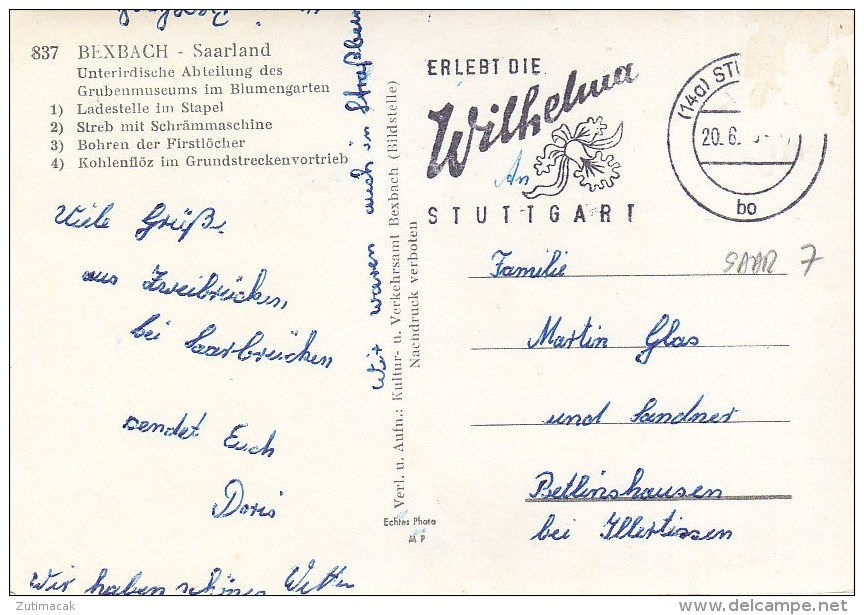 837 BEXBACH - Saarland
Unterirdische Abteilung des
Grubenmuseums im Blumengarten
1) Ladestelle im Stapel
2) Streb mit Schrämmaschine
3) Bohren der Firstlöcher
4) Kohlenflöz im Grundstreckenvortrieb
Viele Grüße
aus Zweibrücken
bei Saarbrücken
sendet Euch
Doris
Wir haben schönes Wetter
Wir waren auch in Straßburg
Verl. u. Aufn.: Kultur- u. Verkehrsamt Bexbach (Bildstelle)
Nachdruck verboten
Echtes Photo
M P
ERLEBT DIE
Wilhelma
STUTTGART
(14a) ST
20. 6.
bo
An
Familie
SAAR 7
Martin Glas
und Sandner
Betlinshausen
bei Illertissen
Zutimacak
www.delcampe.net